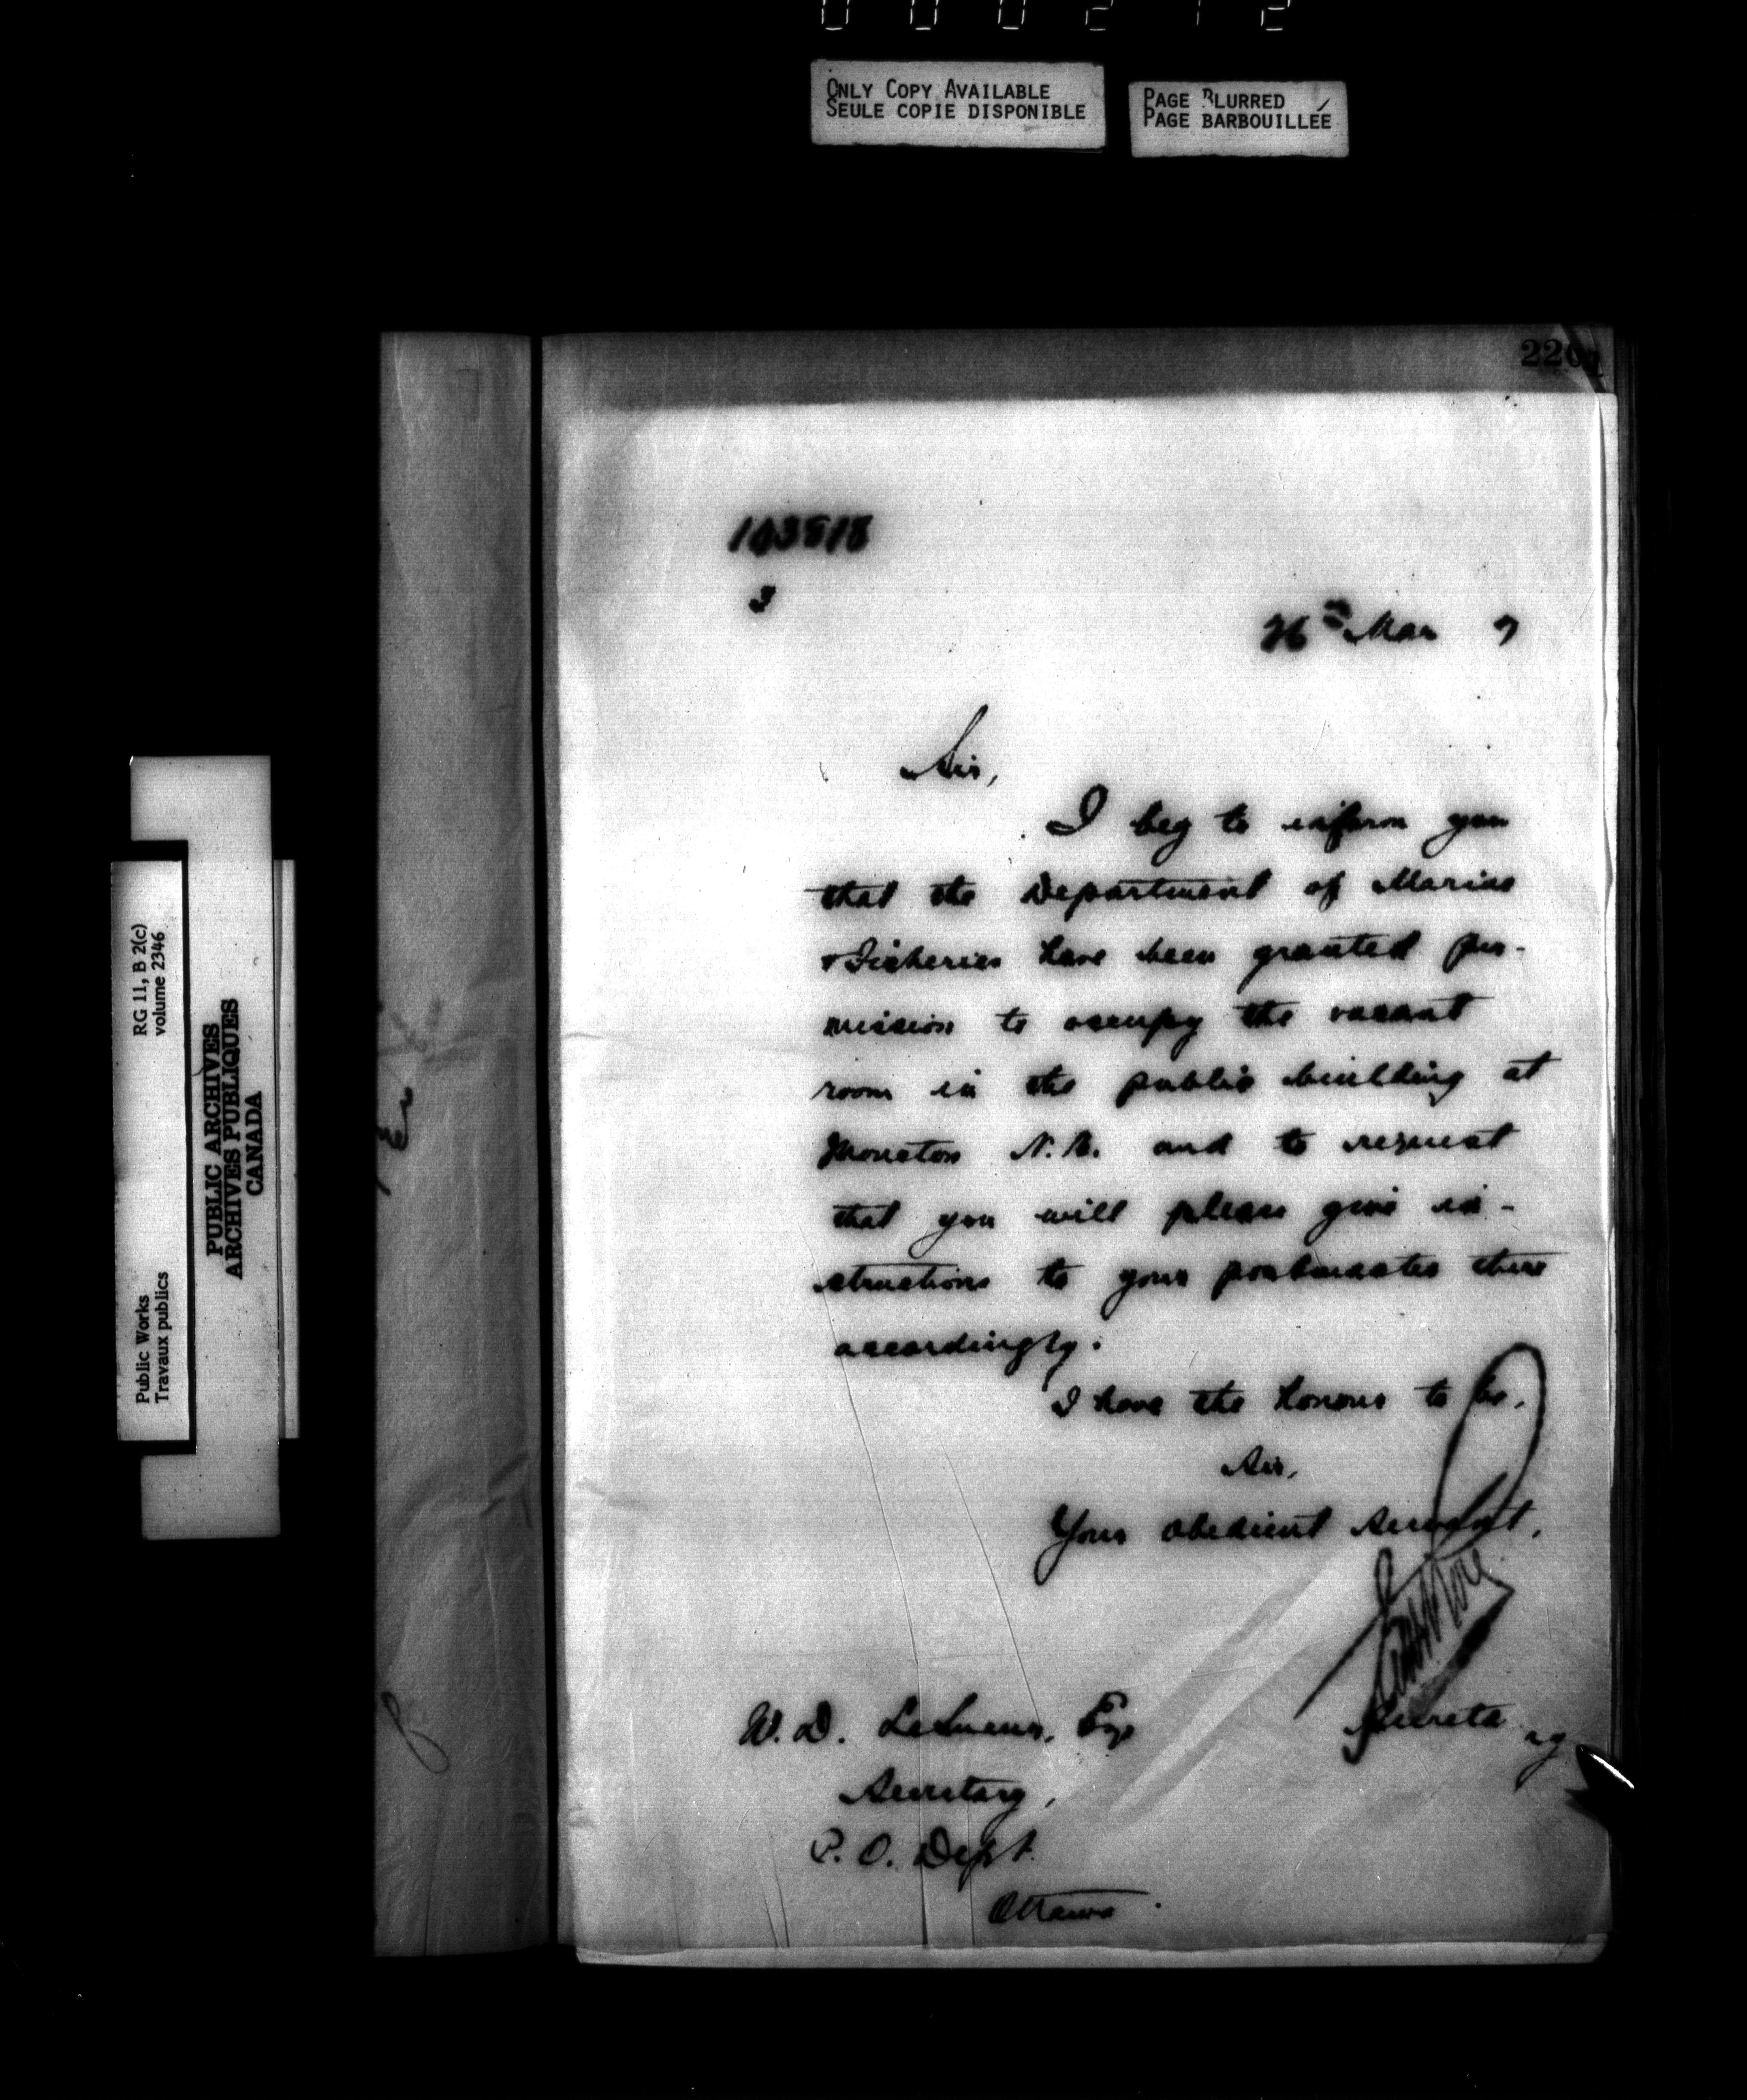 000212
ONLY COPY AVAILABLE
SEULE COPIE DISPONIBLE
PAGE BLURRED
PAGE BARBOUILLÉE
220
103818
3
26th Mar 7
Sir,
I beg to inform you
that the Department of Marine
& Fisheries have been granted per-
mission to occupy the vacant
room in the public building at
Moncton N.B. and to request
that you will please give in-
structions to your postmaster there
accordingly.
I have the honour to be,
Sir,
Your obedient Servant,
Secretary
W. D. LeSueur, Esq
Secretary,
P. O. Dept.
Ottawa.
RG 11, B 2(c)
volume 2346
Public Works
Travaux publics
PUBLIC ARCHIVES
ARCHIVES PUBLIQUES
CANADA